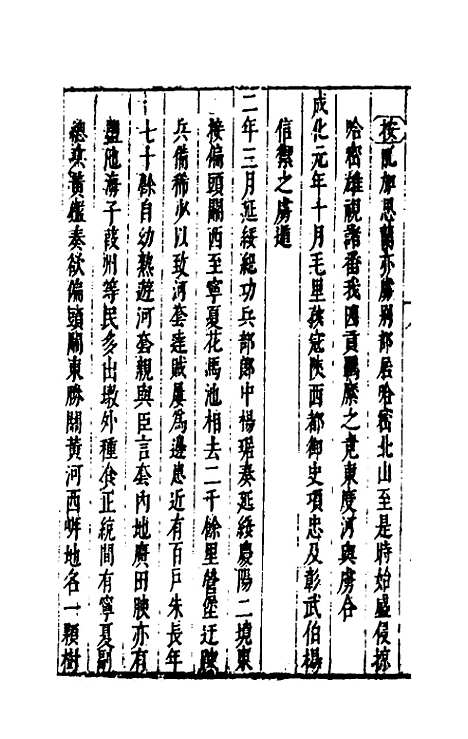 按癿加思蘭亦虜別部居哈密北山至是時始盛侵掠
哈密雄視諸番我因貢羈縻之竟東度河與虜合
成化元年十月毛里孩寇陝西都御史項忠及彰武伯楊
信禦之虜遁
二年三月延綏紀功兵部郎中楊琚奏延綏慶陽二境東
接偏頭關西至寧夏花馬池相去二千餘里營堡迂踈
兵備稀少以致河套達賊屢為邊患近有百戶朱長年
七十餘自幼熟遊河套親與臣言套內地廣田腴亦有
鹽池海子葭州等民多出墩外種食正統間有寧夏副
總兵黃鑑奏欲偏頭關東勝關黃河西岸地名一顆樹